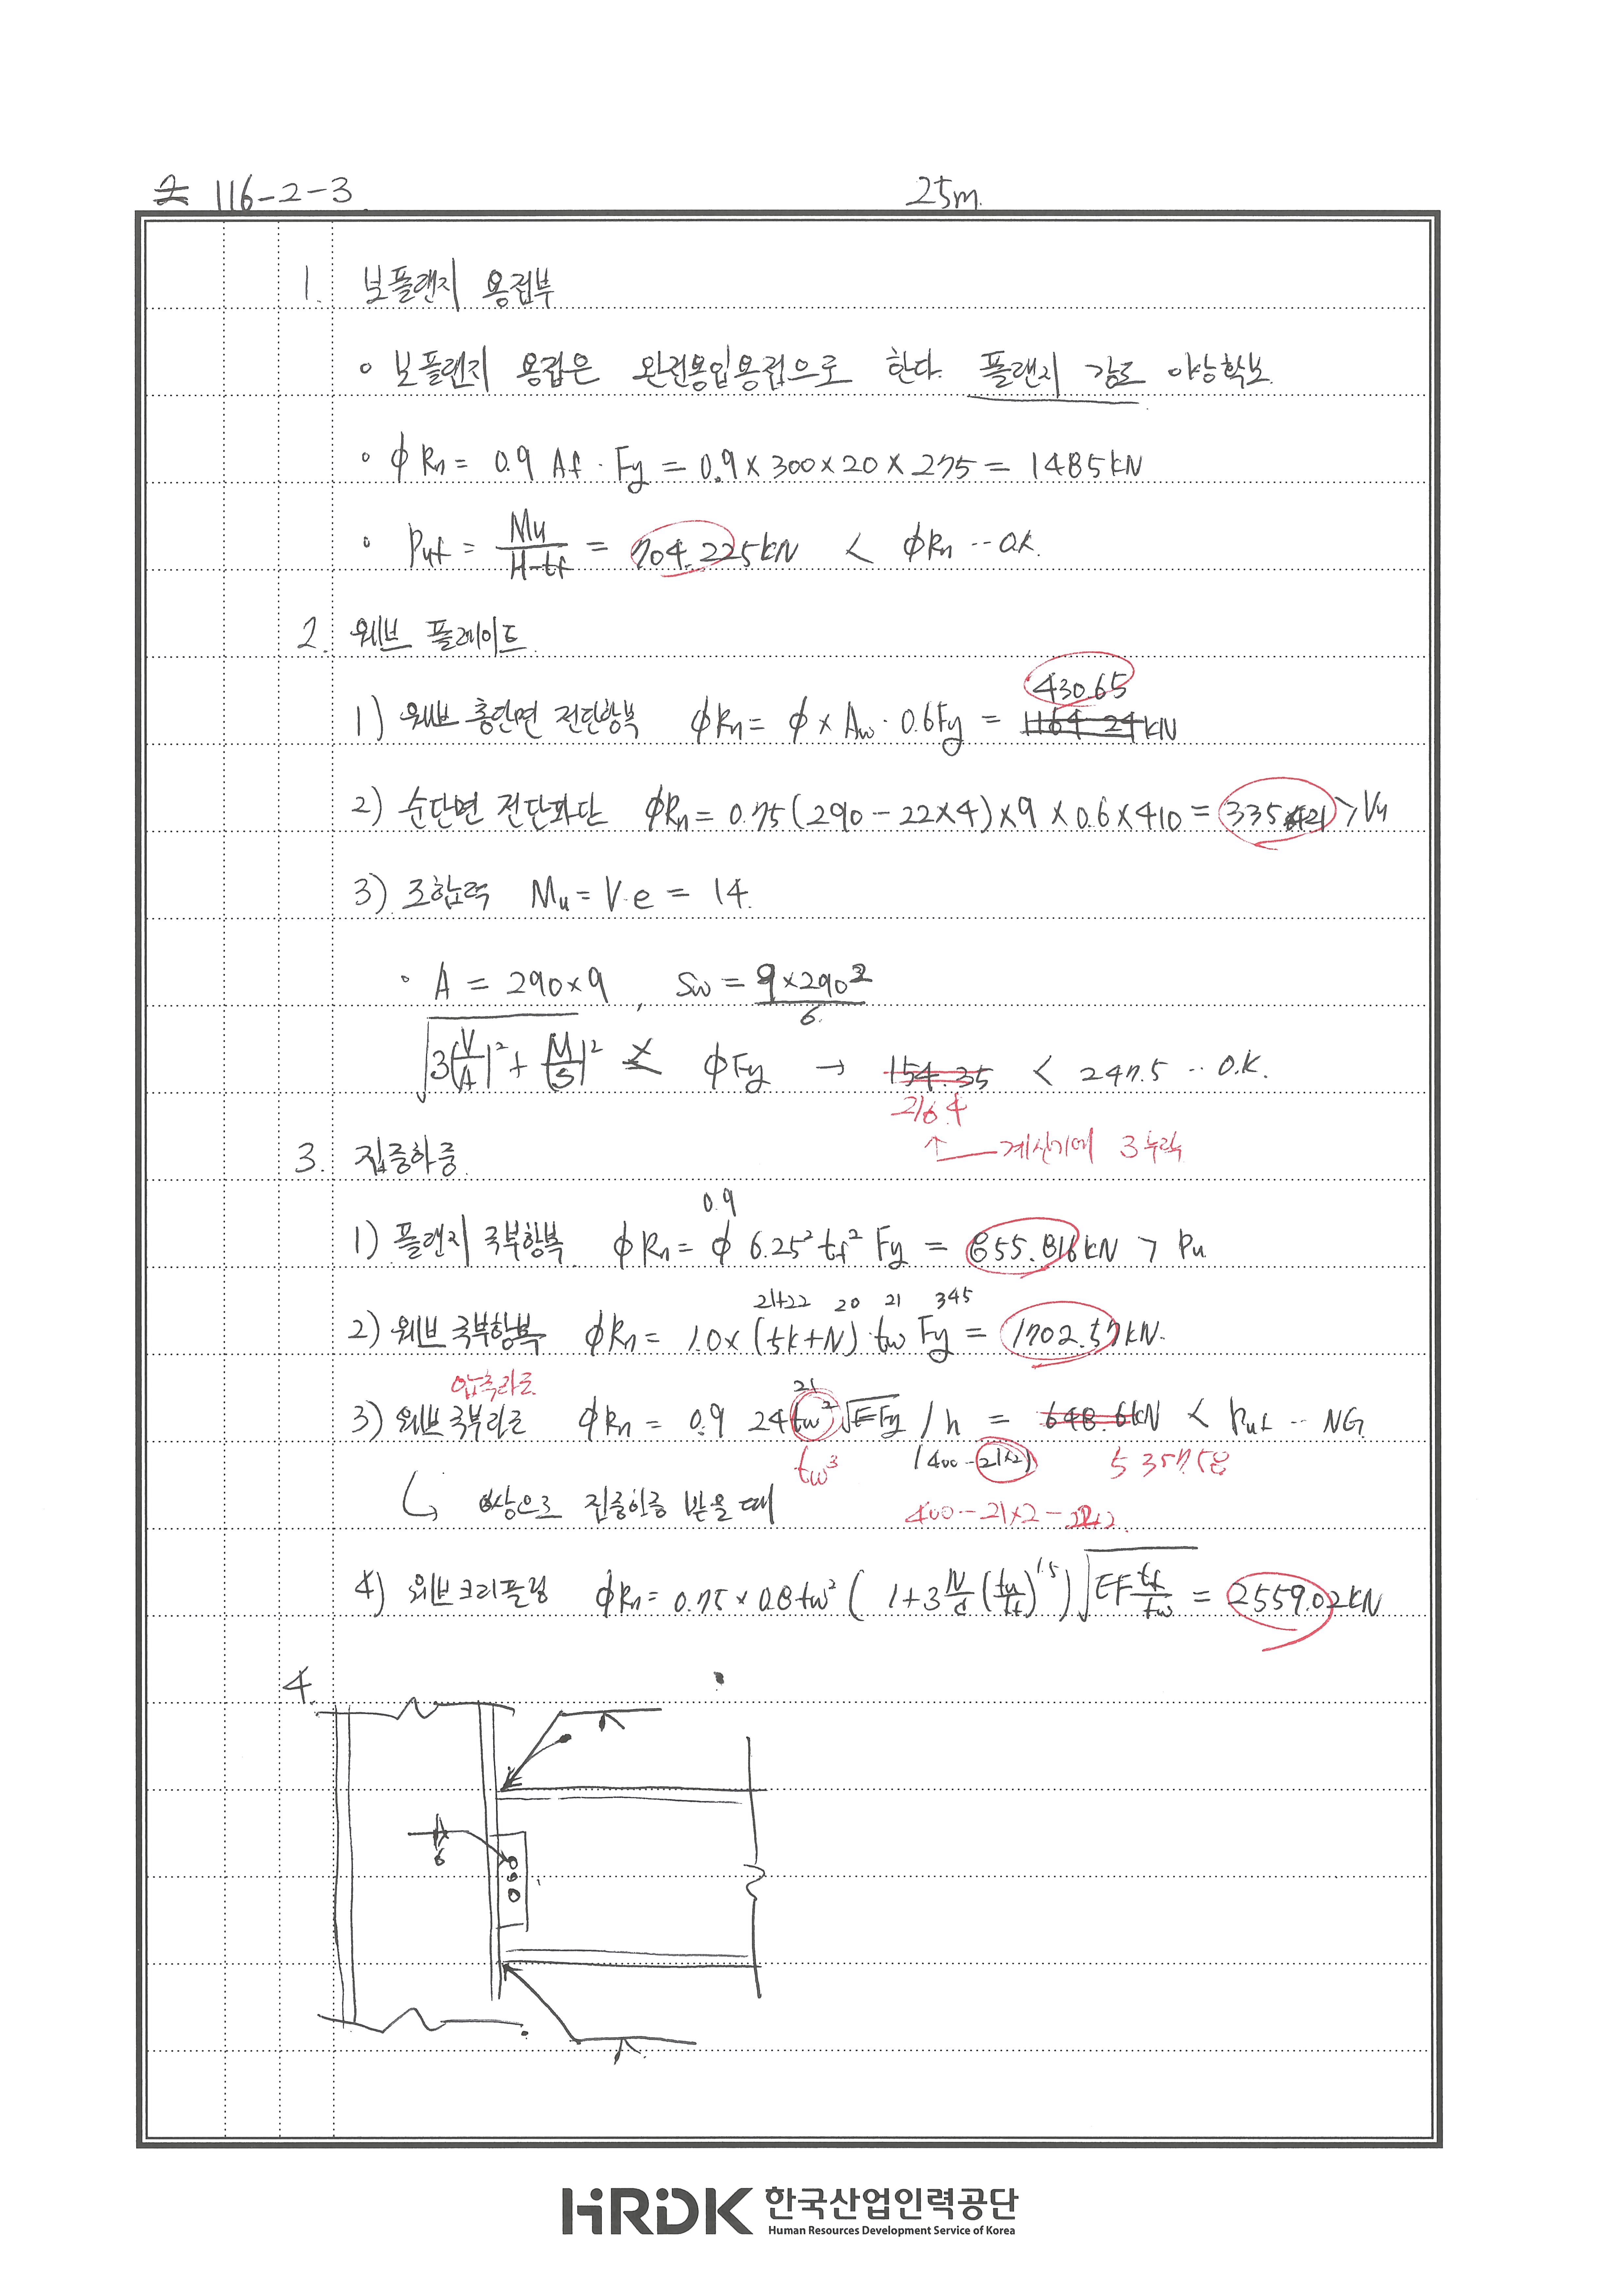 116-2-3 25m.
1. 보플랜지 용접부
◦ 보플랜지 용접은 완전용입용접으로 한다. 플랜지 강도 이상확보.
◦ ϕRn = 0.9 Af · Fy = 0.9 × 300 × 20 × 275 = 1485kN
◦ Puf = Mu / H-tf = 704.225kN < ϕRn ·· O.K.
2. 웨브 플레이트.
430.65
1) 웨브 총단면 전단항복 ϕRn = ϕ × Aw · 0.6Fy = 1164.24kN
2) 순단면 전단파단 ϕRn = 0.75(290 - 22×4)×9 × 0.6 × 410 = 335.421 > Vu
3) 조합력 Mu = V·e = 14.
◦ A = 290×9 , Sw = 9×290² / 6.
√3(V/A)² + (M/S)² ≤ ϕFy → 154.35 < 247.5 ·· O.K.
216.4
↑ 계산기에 3 누락
3. 집중하중.
0.9
1) 플랜지 국부항복 ϕRn = ϕ 6.25² tf² Fy = 855.816kN > Pu
21+22 20 21 345
2) 웨브 국부항복 ϕRn = 1.0×(5k+N)·tw Fy = 1702.57kN.
압축좌굴
21
3) 웨브 국부좌굴 ϕRn = 0.9 24tw² √EFy / h = 648.6kN < Puf ·· NG.
tw³ (400-21×2) 5357.58
↳ 양쪽으로 집중하중 받을 때 400-21×2-22×2
4) 웨브크리플링 ϕRn = 0.75 × 0.8tw² (1+3 N/d (tw/tf)^1.5) √EF tf/tw = 2559.02kN
4.
6
HRDK 한국산업인력공단
Human Resources Development Service of Korea